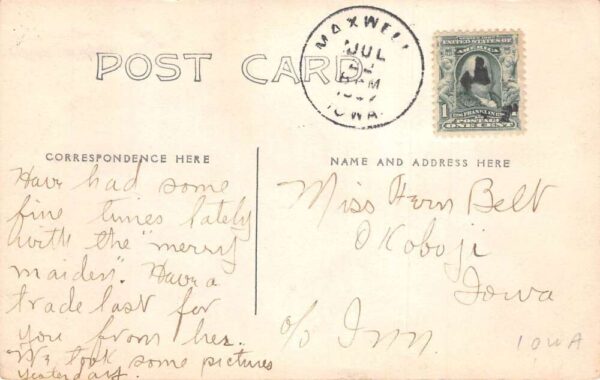 POST CARD
MAXWELL
JUL
IOWA
UNITED STATES OF
AMERICA
1
FRANKLIN
POSTAGE
ONE CENT
CORRESPONDENCE HERE
Have had some
fine times lately
with the "merry
maiden". Have a
trade last for
you from her.
We took some pictures
yesterday.
NAME AND ADDRESS HERE
Miss Fern Belt
Okoboji
Iowa
c/o Inn.
IOWA